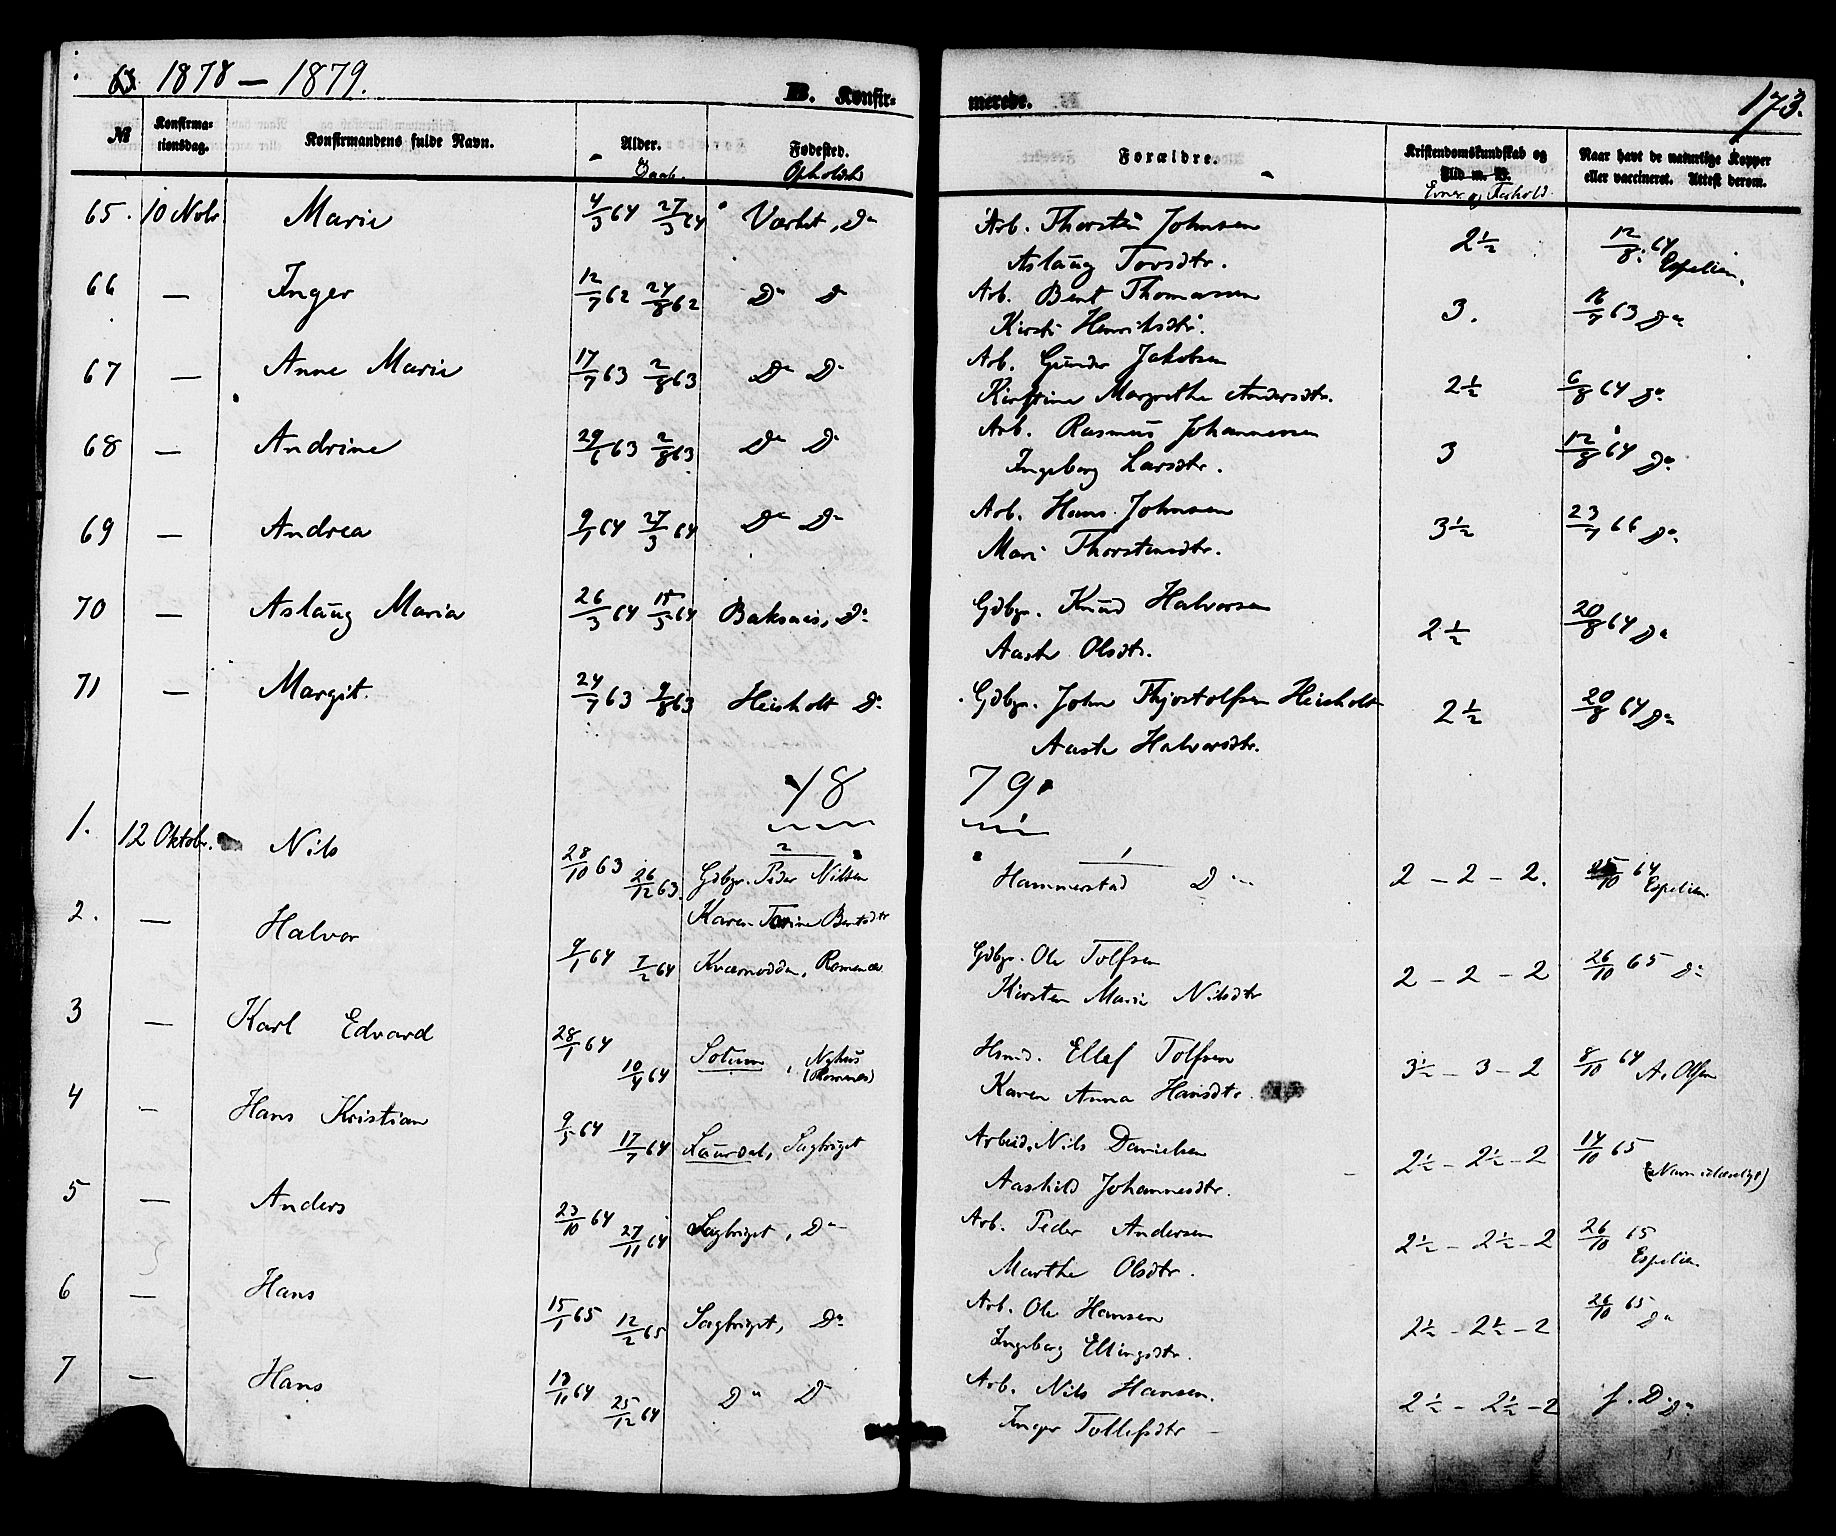 1878 — 1879.
B. Konfir-
merede.
173.
№ Konfirma-tionsdag. Konfirmandens fulde Navn. Alder. Daab. Fødested. Opholdst. Forældre. Kristendomskundskab og Flid m. V. Evner og Forhold Naar havt de naturlige Kopper eller vaccineret. Attest derom.
65. 10 Novbr Marie 4/3 64 27/3 64 Værket, Do Arb. Thorsten Johnsen 2½ 12/8 64
Aslaug Torsdtr. Espelien.
66 — Inger 12/7 62 24/8 62 Do Do Arb. Bent Thomassen 3. 16/7 63 Do
Kirsti Henriksdtr.
67 — Anne Marie 17/7 63 2/8 63 Do Do Arb. Gunder Jakobsen
Kirstine Margrethe Andersdtr. 2½ 6/8 64 Do
68 — Andrine 29/6 63 2/8 63 Do Do Arb. Rasmus Johannesen 3 12/8 64 Do
Ingeborg Larsdtr.
69 — Andrea 9/1 64 27/3 64 Do Do Arb. Hans Johnsen 3½ 23/7 66 Do
Mari Thorstensdtr.
70 — Aslaug Maria 26/3 64 15/5 64 Baksaas, Do Gdbgr. Knud Halvorsen 2½ 20/8 64 Do
Aaste Olsdtr.
71 — Margit. 24/7 63 9/8 63 Heisholt Do Gdbgr. John Thjostolfsen Heisholt 2½ 20/8 64 Do
Aaste Halvorsdtr.
18 79.
2 1
1. 12 Oktobr. Nils 28/10 63 26/12 63. Gdbgr. Peder Nilsen Hammerstad Do 2 — 2 — 2. 25/10 64 Espelien
Karen Torine Bentsdtr
2. — Halvor 9/1 64 7/2 64 Kværnodden, Romenæs Gdbgr. Ole Tolfsen 2 — 2 — 2 26/10 65 Do
Kirsten Marie Nilsdtr
3 — Karl Edvard 28/1 64 10/4 64 Solum, Nyhus (Romnes) Hsmd. Ellef Tolfsen 3½ — 3 — 2 8/10 64 A. Olsen
Karen Anna Hansdtr.
4 — Hans Kristian 9/5 64 17/7 64 Laurdal, Sagbriget Arbeid. Nils Danielsen 2½ — 2½ — 2 14/10 65
Aashild Johannesdtr. (Navn ulæseligt)
5 — Anders 23/10 64 27/11 64 Sagbriget, Do Arb. Peder Andersen 2½ — 2½ — 2 26/10 65
Marthe Olsdtr. Espelien
6 — Hans 15/1 65 12/2 65 Sagbriget, Do Arb. Ole Hansen 2½ — 2½ — 2 26/10 65 Do
Ingeborg Ellingsdtr.
7 — Hans 13/11 64 25/12 64 Do Do Arb. Nils Hansen. 2½ — 2½ — 2 f. D. Do
Inger Tollefsdtr